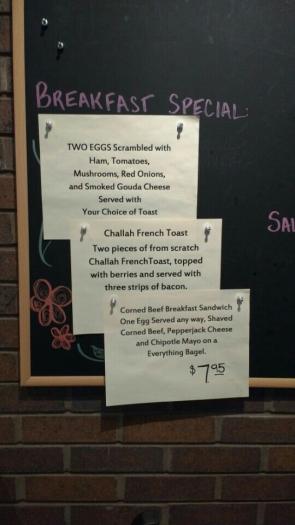 BREAKFAST SPECIAL:
TWO EGGS Scrambled with
Ham, Tomatoes,
Mushrooms, Red Onions,
and Smoked Gouda Cheese
Served with
Your Choice of Toast
SAL
Challah French Toast
Two pieces of from scratch
Challah FrenchToast, topped
with berries and served with
three strips of bacon.
Corned Beef Breakfast Sandwich
One Egg Served any way, Shaved
Corned Beef, Pepperjack Cheese
and Chipotle Mayo on a
Everything Bagel.
$7.95